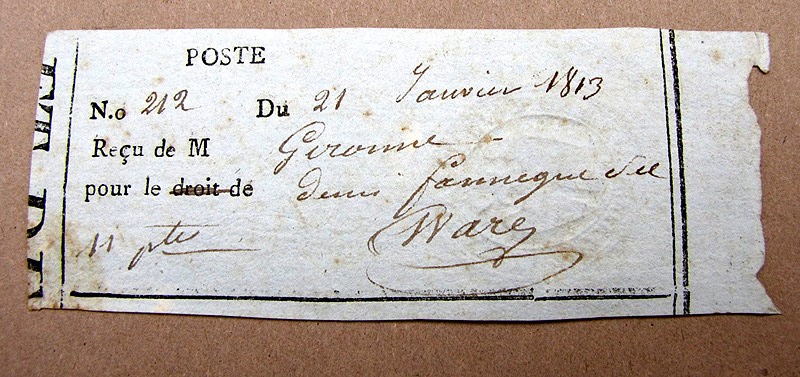 POSTE
N.o 212 Du 21 Janvier 1813
Reçu de M Geronne
pour le droit de demi fannegue sel
11 ptes